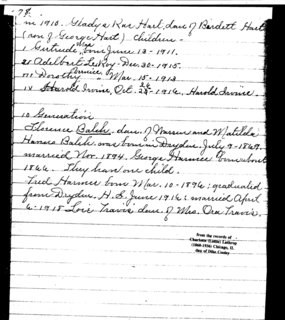 78.
m 1910. Gladys Rae Hart, dau of Burdett Hart
(son of George Hart) Children -
I Gertrude Mae born June 13 - 1911.
II Adelbert LeRoy Dec. 30 - 1915.
III Dorothy Bernice - Mar. 15 - 1913
IV Harold Irvine, Oct. 24 - 1916, Harold Irvine.
10 Generation
Florence Balch, dau. of Warren and Matilda
Balch, was born in Dryden July 9 - 1869.
married Nov. 1894. George Harmce born
1866. They have one child.
Fred born Mar. 10 - 1896; graduated
from Dryden H.S. June 1914; married April
6 - 1918 Lois Travis dau. of Mrs. Ora Travis.
from the records of
Charlotte (Lottie) Lathrop
Chicago, Il.